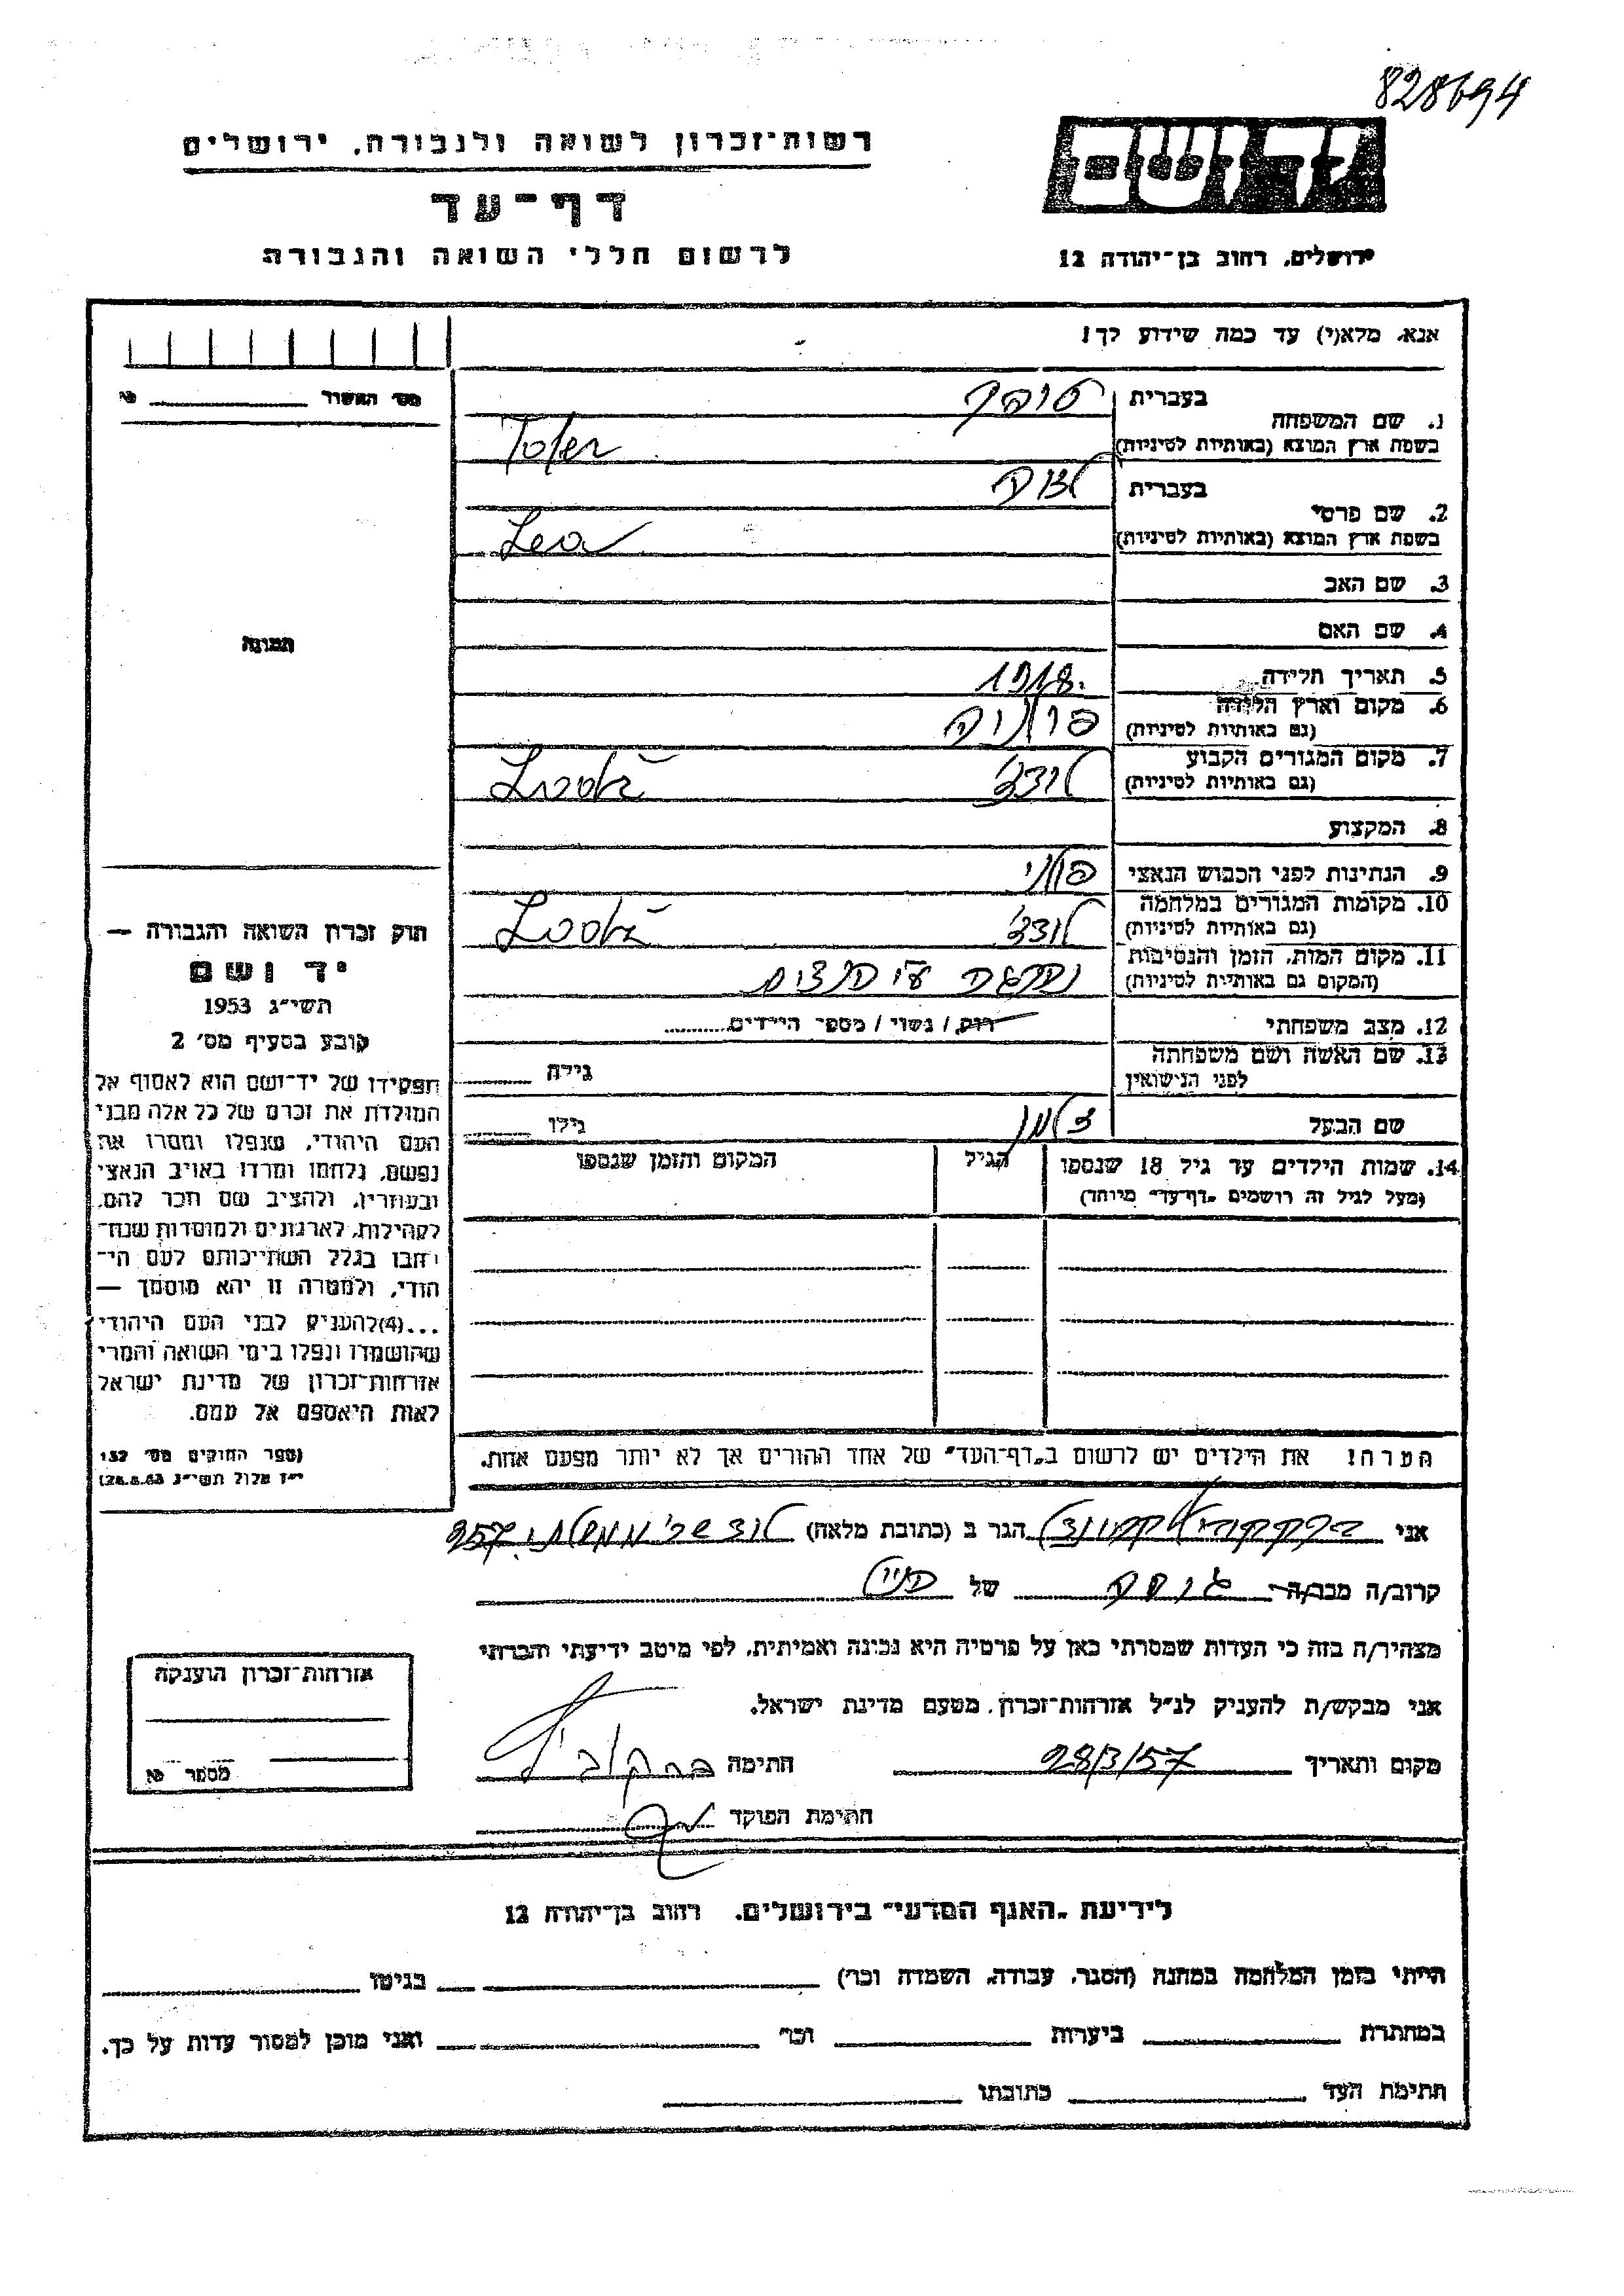 828694
יד ושם
ירושלים, רחוב בן־יהודה 12
רשות־זכרון לשואה ולגבורה, ירושלים
דף־עד
לרשום חללי השואה והגבורה
אנא, מלא(י) עד כמה שידוע לך!
מס׳ האשור
1. שם המשפחה
בעברית טופר
בשפת ארץ המוצא (באותיות לטיניות) Tofer
2. שם פרטי
בעברית לאה
בשפת ארץ המוצא (באותיות לטיניות) Lea
3. שם האב
4. שם האם
5. תאריך הלידה 1918.
6. מקום וארץ הלידה
(גם באותיות לטיניות) פולניה
7. מקום המגורים הקבוע
(גם באותיות לטיניות) לודז׳ Lodź
8. המקצוע
9. הנתינות לפני הכבוש הנאצי פולני
10. מקומות המגורים במלחמה
(גם באותיות לטיניות) לודז׳ Lodź
11. מקום המות, הזמן והנסיבות
(המקום גם באותיות לטיניות) נהרגה ע״י
12. מצב משפחתי רוק/נשוי/מספר הילדים
13. שם האשה ושם משפחתה
לפני הנישואין גילה
שם הבעל זלמן גילו
14. שמות הילדים עד גיל 18 שנספו
(מעל לגיל זה רושמים „דף־עד״ מיוחד)
הגיל
המקום והזמן שנספו
הערה! את הילדים יש לרשום ב„דף־העד״ של אחד ההורים אך לא יותר מפעם אחת.
תמונה
חוק זכרון השואה והגבורה —
יד ושם
תשי״ג 1953
קובע בסעיף מס׳ 2
תפקידו של יד־ושם הוא לאסוף אל
המולדת את זכרם של כל אלה מבני
העם היהודי, שנפלו ומסרו את
נפשם, נלחמו ומרדו באויב הנאצי
ובעוזריו, ולהציב שם וזכר להם,
לקהילות, לארגונים ולמוסדות שנח־
רבו בגלל השתייכותם לעם הי־
הודי, ולמטרה זו יהא מוסמך —
...(4)להעניק לבני העם היהודי
שהושמדו ונפלו בימי השואה והמרי
אזרחות־זכרון של מדינת ישראל
לאות היאספם אל עמם.
(ספר החוקים מס׳ 132
י״ז אלול תשי״ג 28.8.53)
אני הגר ב (כתובת מלאה) 257
קרוב/ה מכר/ה של
מצהיר/ה בזה כי העדות שמסרתי כאן על פרטיה היא נכונה ואמיתית, לפי מיטב ידיעתי והכרתי
אני מבקש/ת להעניק לנ״ל אזרחות־זכרון מטעם מדינת ישראל.
מקום ותאריך 28/3/57 חתימה
חתימת הפוקד
אזרחות־זכרון הוענקה
מספר
לידיעת „האגף המדעי״ בירושלים, רחוב בן־יהודה 12
הייתי בזמן המלחמה במחנה (הסגר, עבודה, השמדה וכו׳) בגיטו
במחתרת ביערות וכו׳ ואני מוכן למסור עדות על כך.
חתימת העד כתובתו